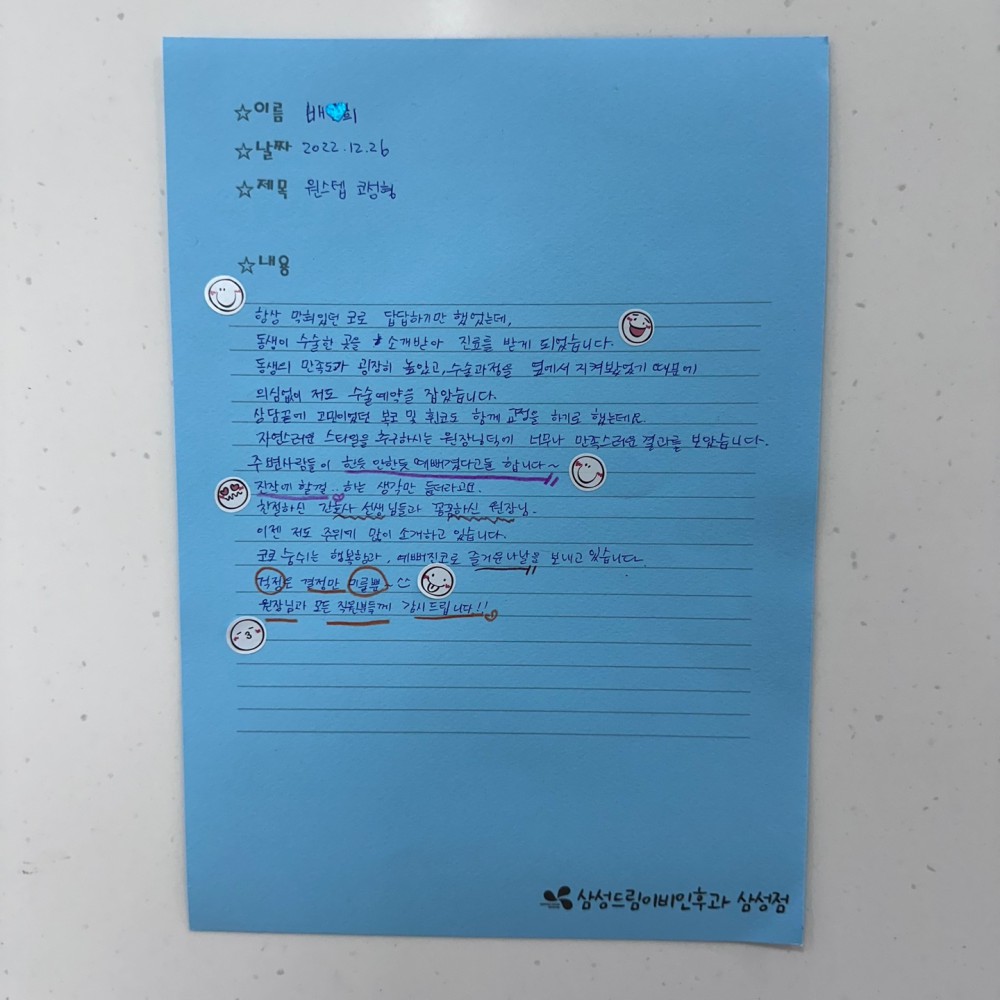 ☆이름 배💙희
☆날짜 2022.12.26
☆제목 원스텝 코성형
☆내용
항상 막혀있던 코로 답답하기만 했었는데,
동생이 수술한 곳을 소개받아 진료를 받게 되었습니다.
동생의 만족도가 굉장히 높았고, 수술과정을 옆에서 지켜봤었기 때문에
의심없이 저도 수술예약을 잡았습니다.
상담끝에 고민이었던 복코 및 휜코도 함께 교정을 하기로 했는데요.
자연스러운 스타일을 추구하시는 원장님덕에 너무나 만족스러운 결과를 보았습니다.
주변사람들이 한듯 안한듯 예뻐졌다고들 합니다~
진작에 할껄.. 하는 생각만 들더라고요.
친절하신 간호사 선생님들과 꼼꼼하신 원장님.
이젠 저도 주위에 많이 소개하고 있습니다.
코로 숨쉬는 행복함과, 예뻐진코로 즐거운나날을 보내고 있습니다.
걱정도 결정만 미룰뿐~ ^^
원장님과 모든 직원분들께 감사드립니다!!
삼성드림이비인후과 삼성점